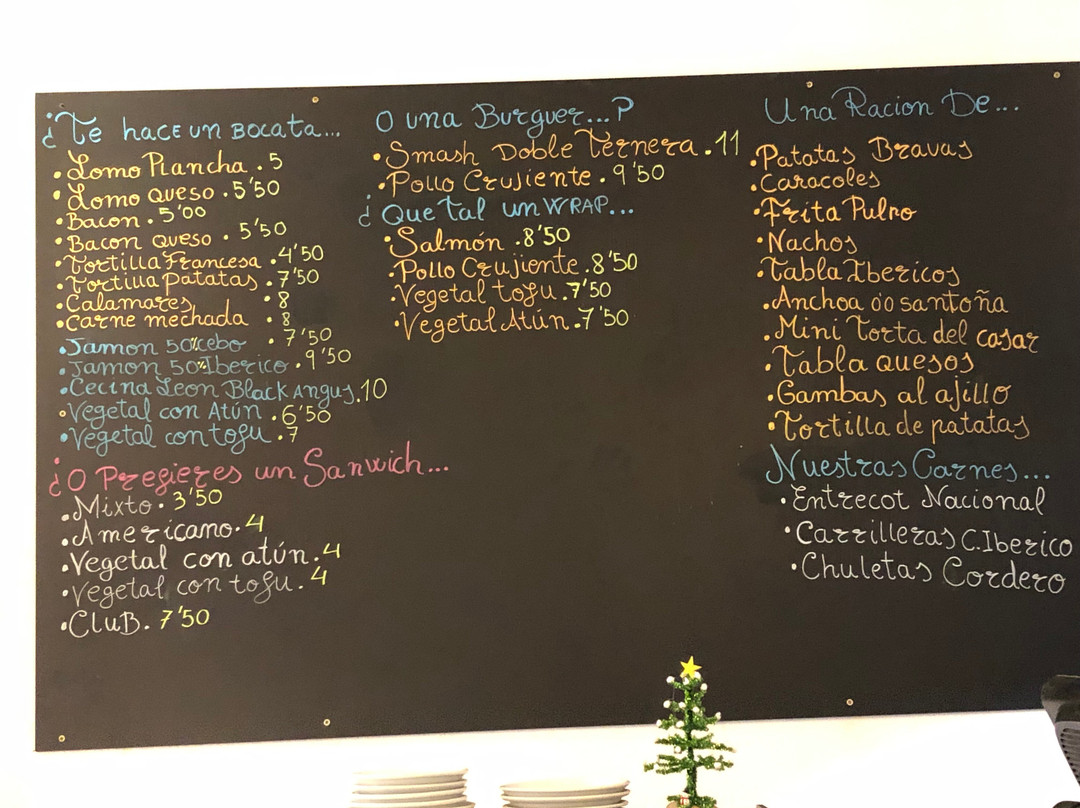 ¿Te hace un Bocata...
.Lomo Plancha.5
.Lomo queso.5'50
.Bacon.5'00
.Bacon queso.5'50
.Tortilla Francesa.4'50
.Tortilla patatas.7'50
.Calamares.8
.Carne mechada.8
.Jamon 50%cebo.7'50
.Jamon 50%Iberico.9'50
.Cecina Leon Black Angus.10
.Vegetal con Atún.6'50
.Vegetal con tofu.7
¿O Prefieres un Sanwich...
.Mixto.3'50
.Americano.4
.Vegetal con atún.4
.Vegetal con tofu.4
.Club.7'50
O una Burguer...?
.Smash Doble Ternera.11
.Pollo Crujiente.9'50
¿Que tal un WRAP...
.Salmón.8'50
.Pollo Crujiente.8'50
.Vegetal tofu.7'50
.Vegetal Atún.7'50
Una Racion De...
.Patatas Bravas
.Caracoles
.Frita Pulpo
.Nachos
.Tabla Ibericos
.Anchoa 00 santoña
.Mini Torta del casar
.Tabla quesos
.Gambas al ajillo
.Tortilla de patatas
Nuestras Carnes...
.Entrecot Nacional
.Carrilleras C.Iberico
.Chuletas Cordero